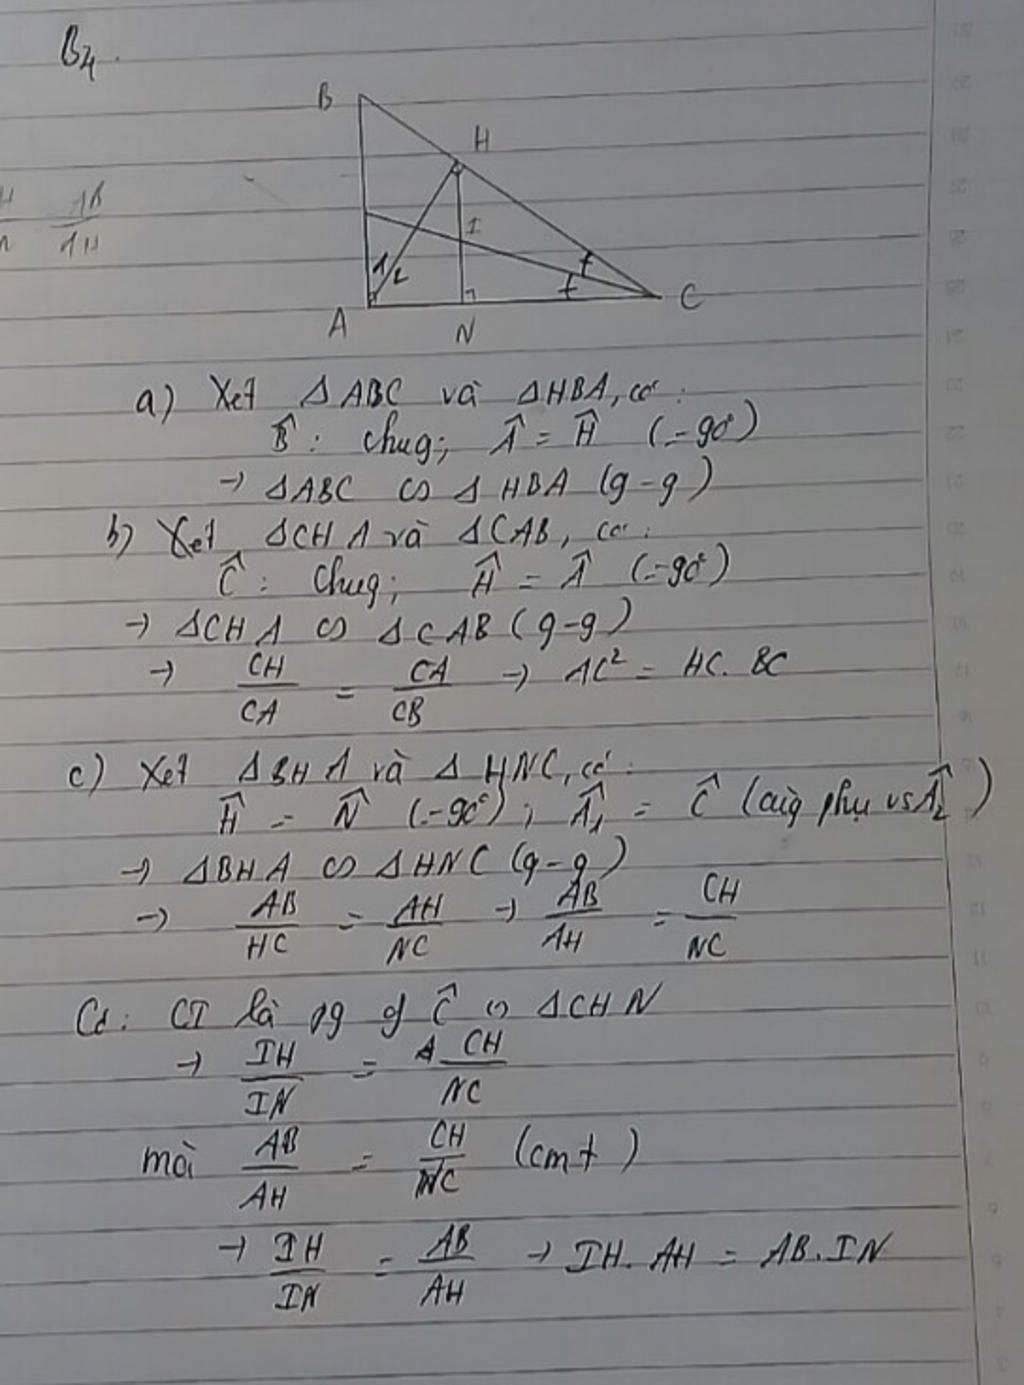 B4.
B
H
AB
AH
I
1 2
A
N
C
a) Xét ΔABC và ΔHBA, có:
B̂: chug; Â = Ĥ (=90°)
→ ΔABC ∽ ΔHBA (g-g)
b) Xét ΔCHA và ΔCAB, có:
Ĉ: Chug; Ĥ = Â (=90°)
→ ΔCHA ∽ ΔCAB (g-g)
→ CH/CA = CA/CB → AC² = HC. BC
c) Xét ΔBHA và ΔHNC, có:
Ĥ = N̂ (=90°); Â₁ = Ĉ (cùg phụ vs Â₂)
→ ΔBHA ∽ ΔHNC (g-g)
→ AB/HC = AH/NC → AB/AH = CH/NC
Có: CI là pg of Ĉ ΔCHN
→ IH/IN = CH/NC
mà AB/AH = CH/NC (cmt)
→ IH/IN = AB/AH → IH. AH = AB. IN